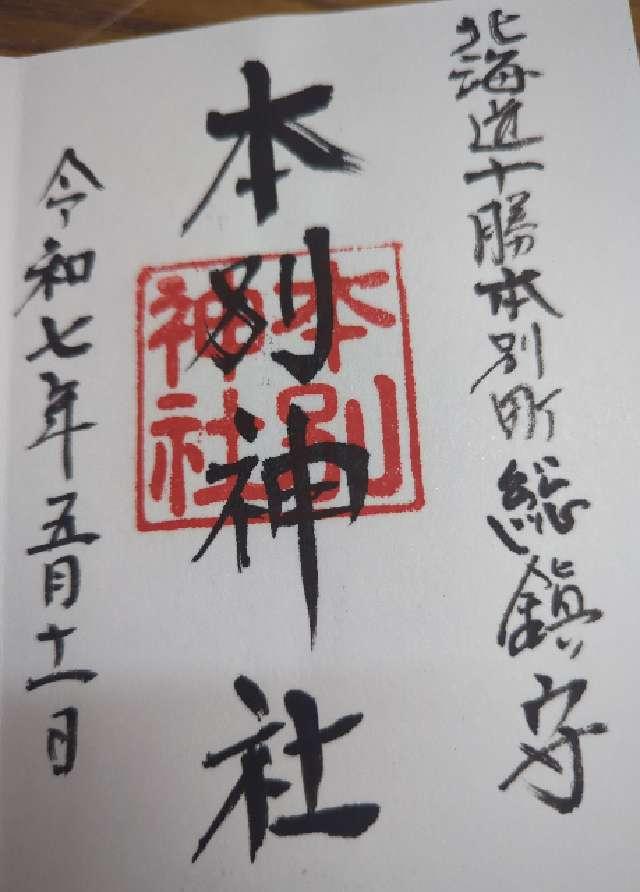 北海道十勝本別町総鎮守
本別神社
本別
神社
令和七年五月十一日